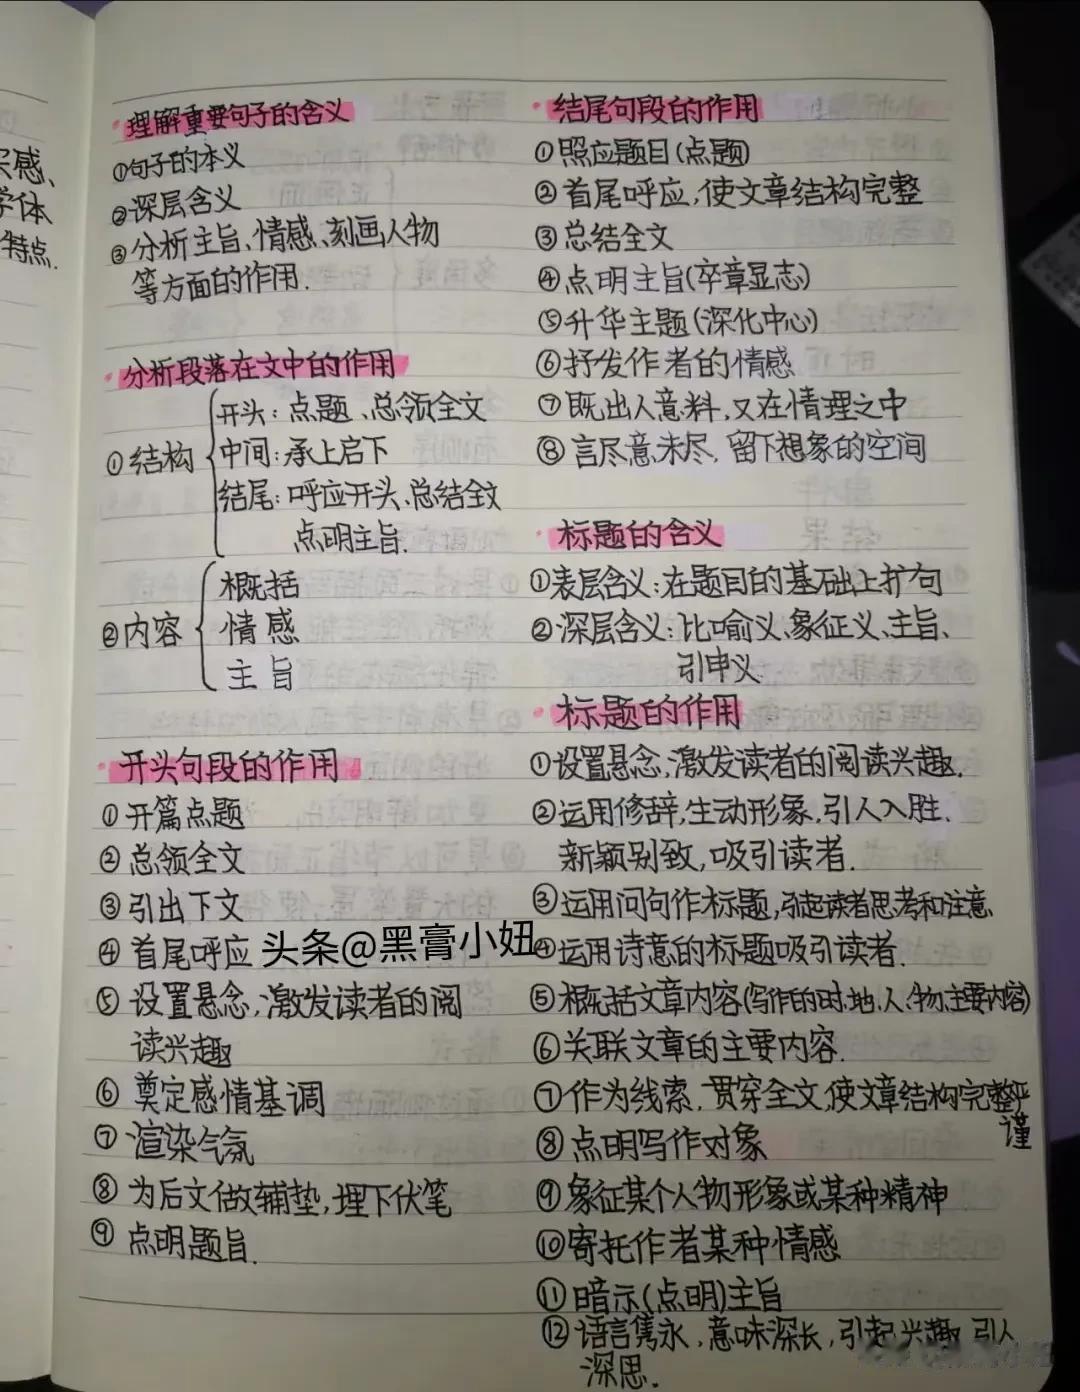 实感、
学体
特点.
理解重要句子的含义
①句子的本义
②深层含义
③分析主旨、情感、刻画人物
等方面的作用.
分析段落在文中的作用
①结构
开头：点题、总领全文
中间：承上启下
结尾：呼应开头、总结全文
点明主旨.
②内容
概括
情感
主旨
开头句段的作用
①开篇点题
②总领全文
③引出下文
④首尾呼应
头条@黑膏小妞
⑤设置悬念，激发读者的阅
读兴趣
⑥奠定感情基调
⑦渲染气氛
⑧为后文做辅垫，埋下伏笔
⑨点明题旨.
结尾句段的作用
①照应题目(点题)
②首尾呼应，使文章结构完整
③总结全文
④点明主旨(卒章显志)
⑤升华主题(深化中心)
⑥抒发作者的情感
⑦既出人意料，又在情理之中
⑧言尽意未尽，留下想象的空间
标题的含义
①表层含义：在题目的基础上扩句
②深层含义：比喻义、象征义、主旨、
引申义.
标题的作用
①设置悬念，激发读者的阅读兴趣.
②运用修辞，生动形象，引人入胜.
新颖别致，吸引读者.
③运用问句作标题，引起读者思考和注意
④运用诗意的标题吸引读者.
⑤概括文章内容(写作的时、地、人、物、主要内容)
⑥关联文章的主要内容.
⑦作为线索，贯穿全文，使文章结构完整严
谨
⑧点明写作对象
⑨象征某个人物形象或某种精神
⑩寄托作者某种情感
⑪暗示(点明)主旨
⑫语言隽永，意味深长，引起兴趣，引人
深思.